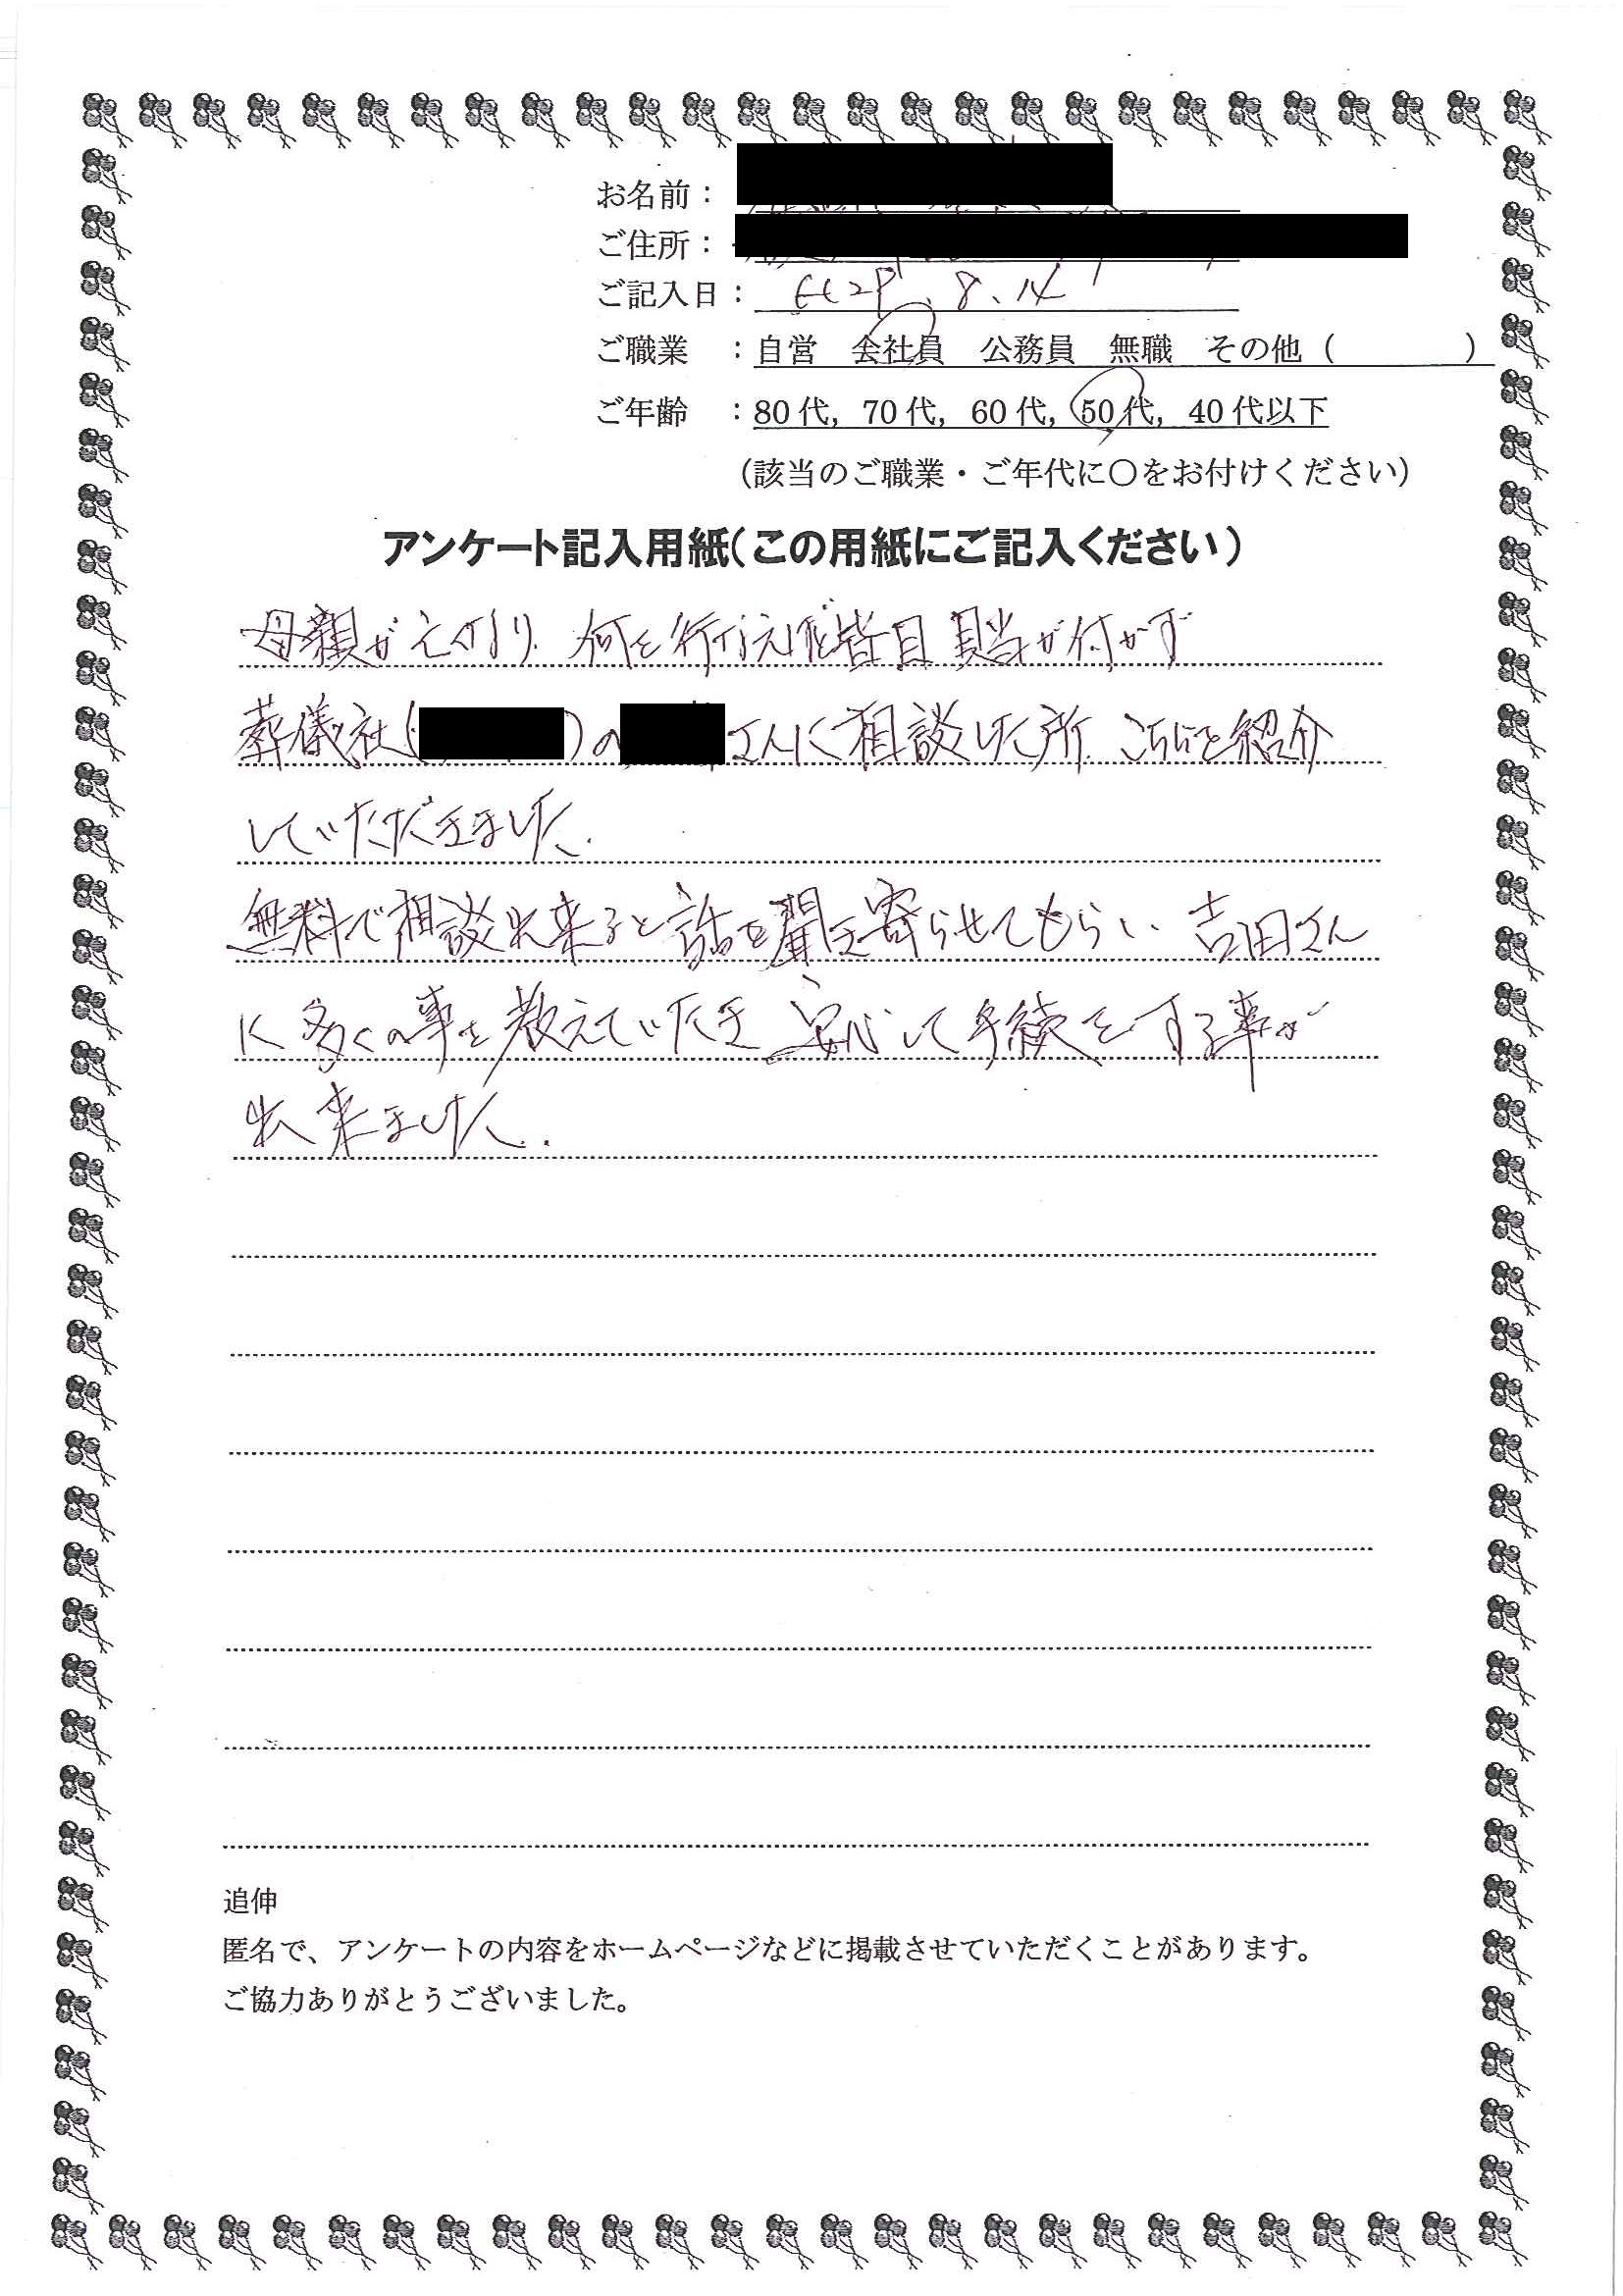 お名前：
ご住所：
ご記入日： H29.8.14
ご職業 ：自営 会社員 公務員 無職 その他（ ）
ご年齢 ：80代，70代，60代，50代，40代以下
（該当のご職業・ご年代に〇をお付けください）
アンケート記入用紙（この用紙にご記入ください）
母親が亡くなり、何を行なえば皆目見当が付かず
葬儀社（ ）の さんに相談した所、こちらを紹介
していただきました。
無料で相談出来ると話を聞き寄らせてもらい、吉田さん
に多くの事を教えていただき、安心して手続をする事が
出来ました。
追伸
匿名で、アンケートの内容をホームページなどに掲載させていただくことがあります。
ご協力ありがとうございました。